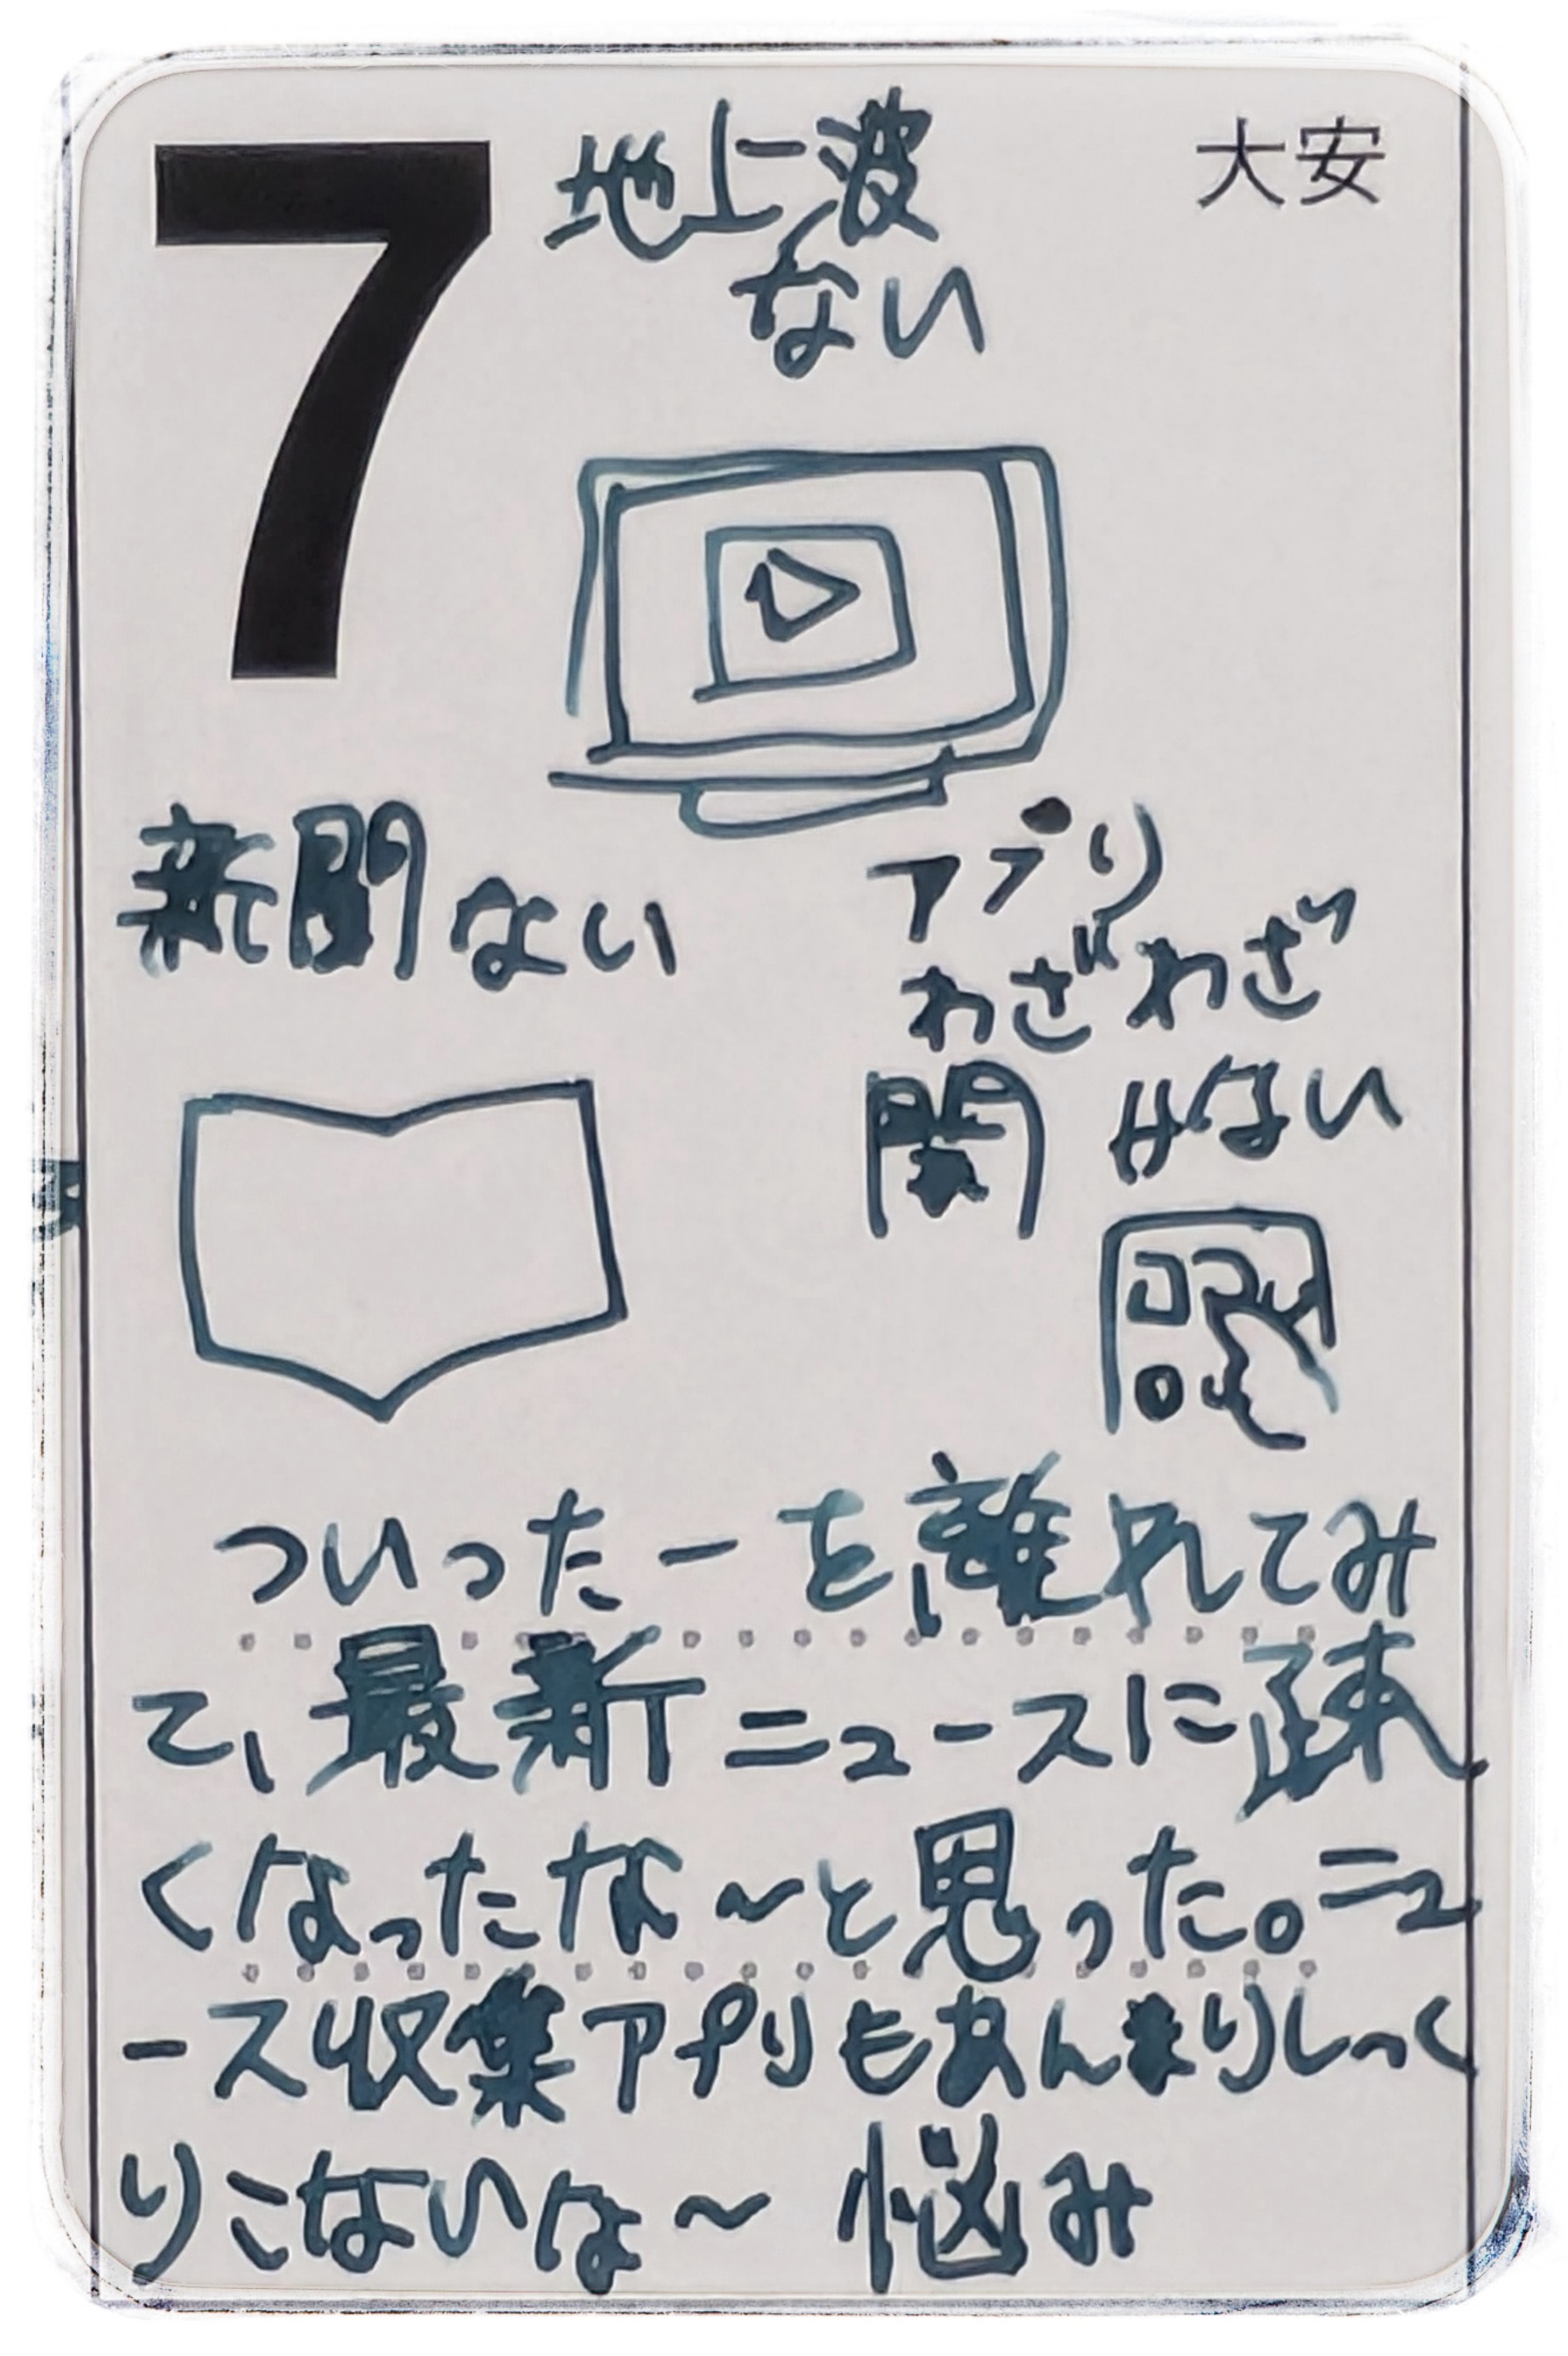 7
大安
地上波
ない
新聞ない
アプリ
わざわざ
開かない
ついったーを離れてみ
て、最新ニュースに疎
くなったな〜と思った。ニュ
ース収集アプリもあんまりしっく
りこないな〜 悩み